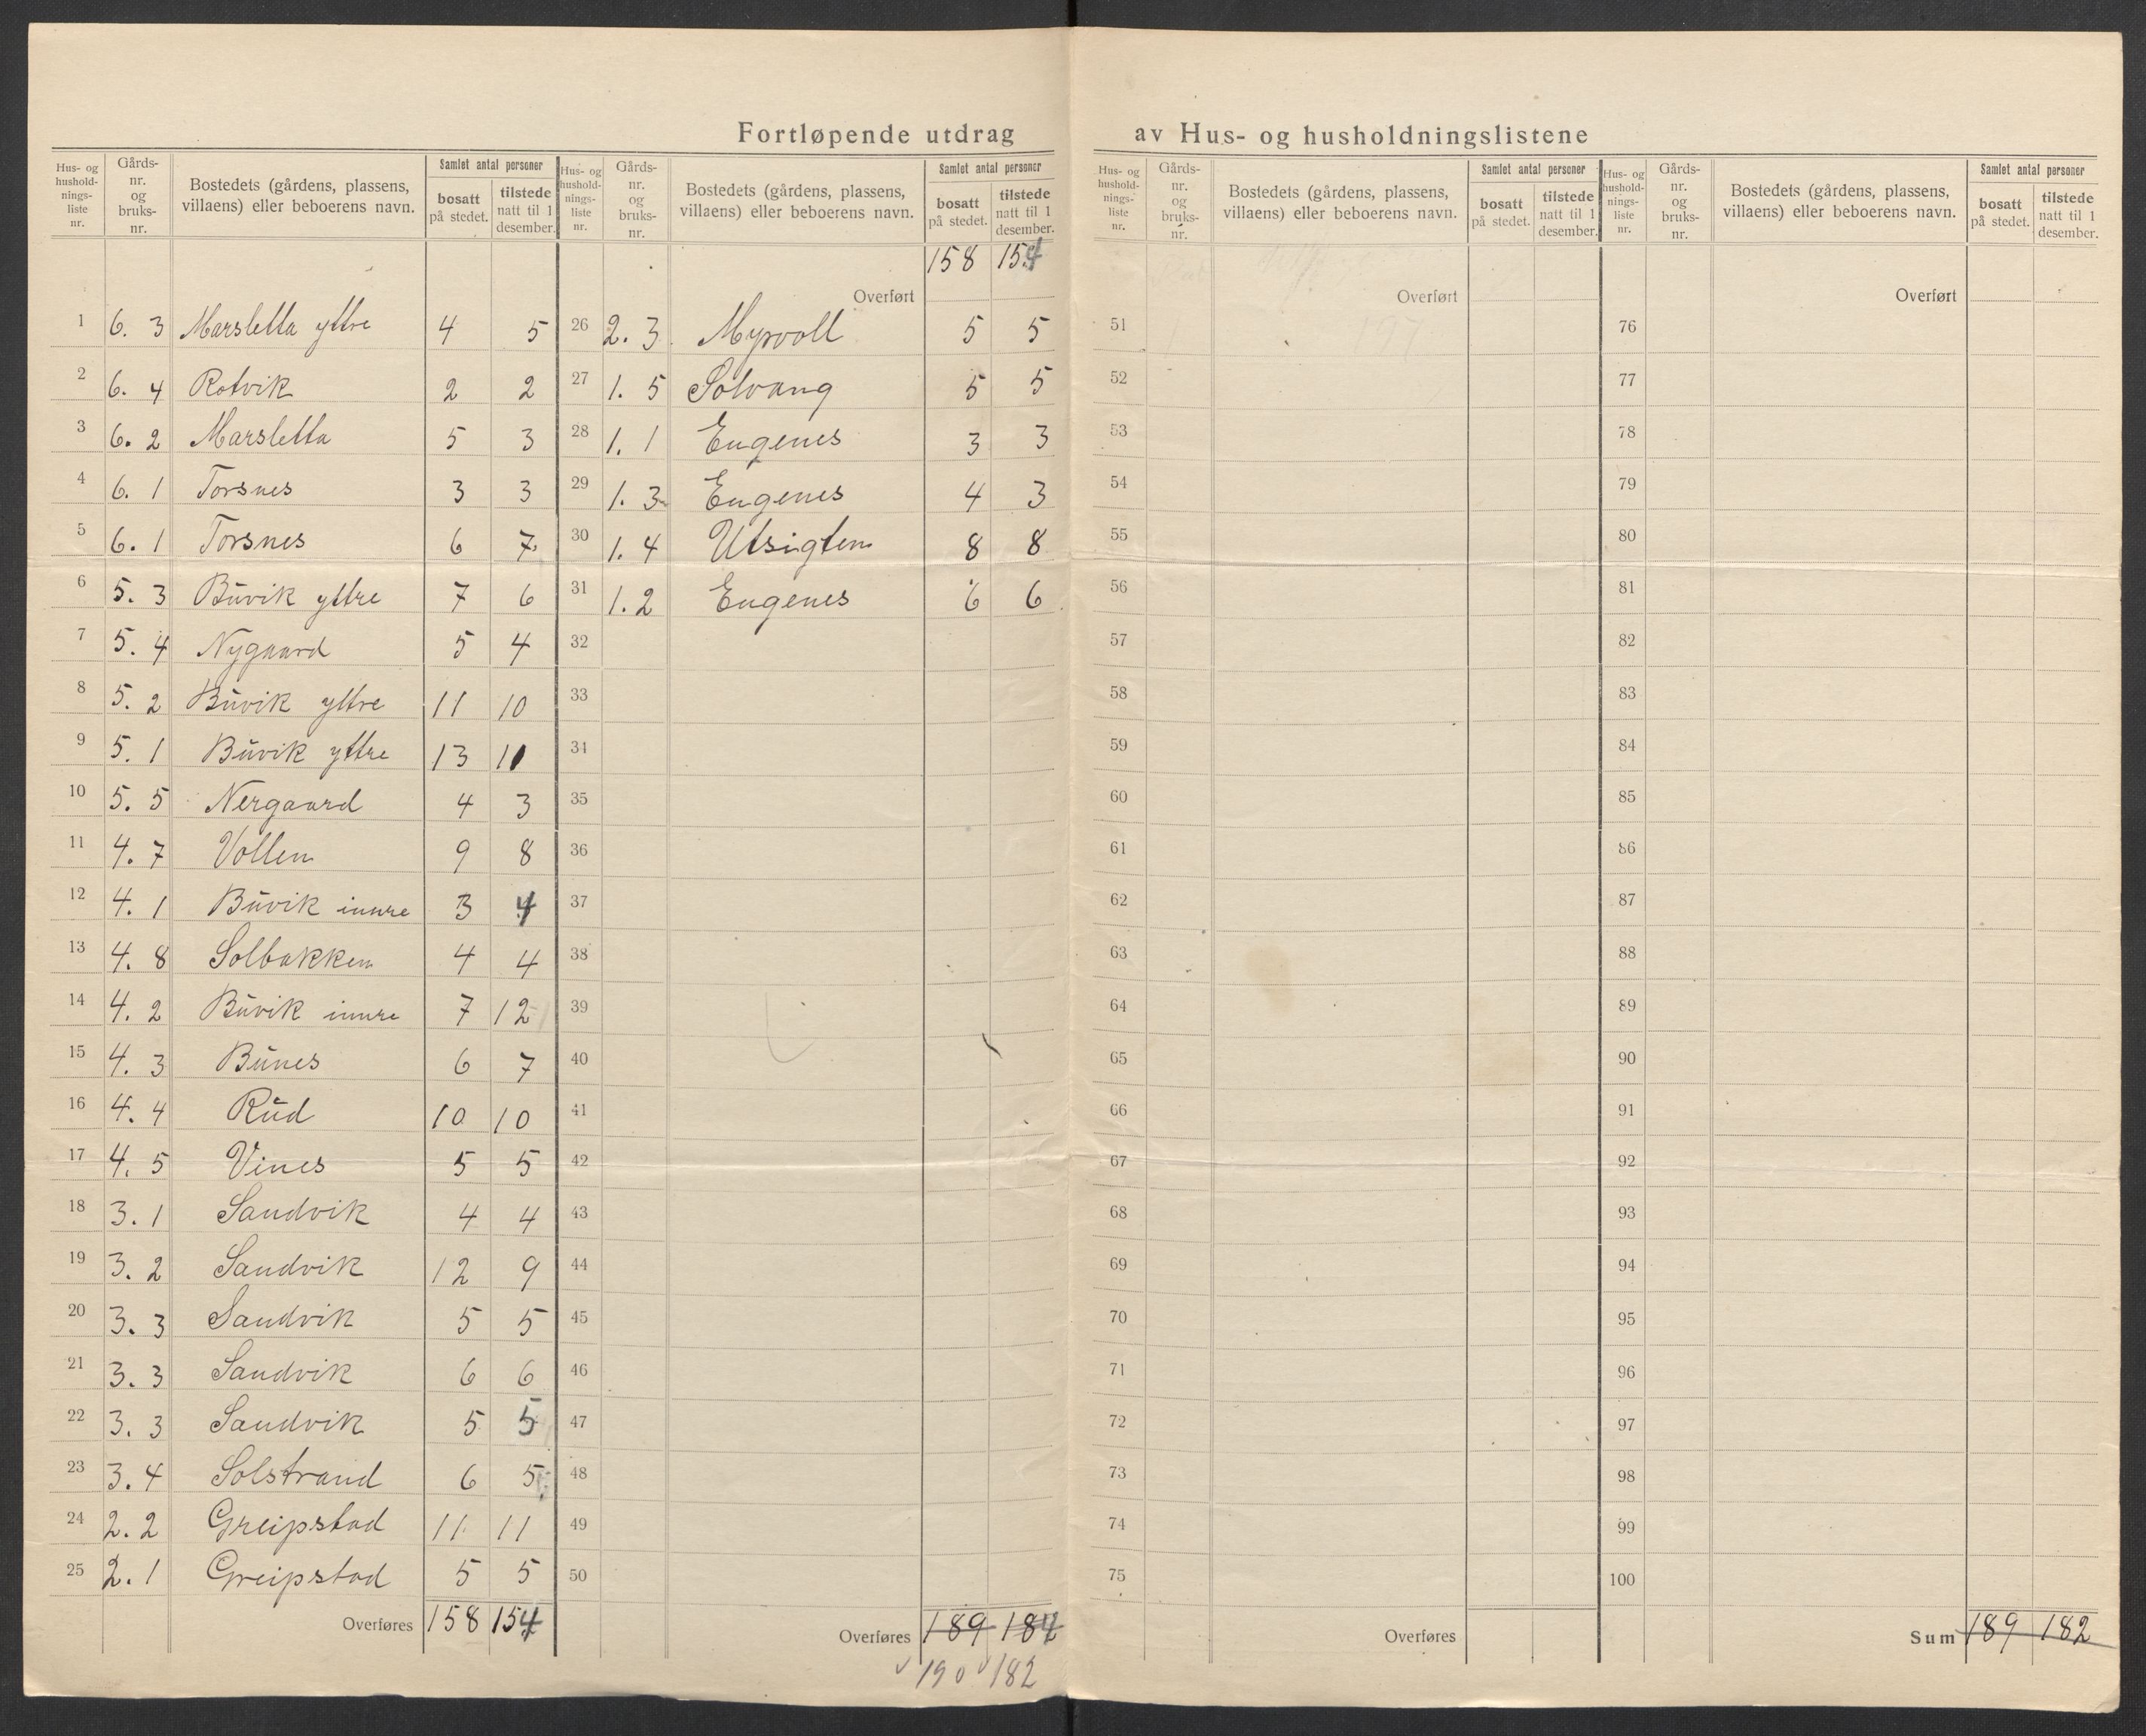 Fortløpende utdrag av Hus- og husholdningslistene
Hus- og husholdnings-liste nr. | Gårds-nr. og bruks-nr. | Bostedets (gårdens, plassens, villaens) eller beboerens navn. | Samlet antal personer | bosatt på stedet. | tilstede natt til 1 desember.
Hus- og husholdnings-liste nr. | Gårds-nr. og bruks-nr. | Bostedets (gårdens, plassens, villaens) eller beboerens navn. | Samlet antal personer | bosatt på stedet. | tilstede natt til 1 desember.
Hus- og husholdnings-liste nr. | Gårds-nr. og bruks-nr. | Bostedets (gårdens, plassens, villaens) eller beboerens navn. | Samlet antal personer | bosatt på stedet. | tilstede natt til 1 desember.
Hus- og husholdnings-liste nr. | Gårds-nr. og bruks-nr. | Bostedets (gårdens, plassens, villaens) eller beboerens navn. | Samlet antal personer | bosatt på stedet. | tilstede natt til 1 desember.
1 6. 3 Marsletta yttre 4 5
2 6. 4 Rotvik 2 2
3 6. 2 Marsletta 5 3
4 6. 1 Torsnes 3 3
5 6. 1 Torsnes 6 7
6 5. 3 Būvik yttre 7 6
7 5. 4 Nygaard 5 4
8 5. 2 Būvik yttre 11 10
9 5. 1 Būvik yttre 13 11
10 5. 5 Nergaard 4 3
11 4. 7 Vollen 9 8
12 4. 1 Būvik innre 3 4
13 4. 8 Solbakken 4 4
14 4. 2 Būvik innre 7 12
15 4. 3 Būnes 6 7
16 4. 4 Rūd 10 10
17 4. 5 Vines 5 5
18 3. 1 Sandvik 4 4
19 3. 2 Sandvik 12 9
20 3. 3 Sandvik 5 5
21 3. 3 Sandvik 6 6
22 3. 3 Sandvik 5 5
23 3. 4 Solstrand 6 5
24 2. 2 Greipstad 11 11
25 2. 1 Greipstad 5 5
Overføres 158 154
158 154
Overført
26 2. 3. Myrvoll 5 5
27 1. 5 Solvang 5 5
28 1. 1 Eugenes 3 3
29 1. 3 Eugenes 4 3
30 1. 4 Utsigten 8 8
31 1. 2 Eugenes 6 6
32
33
34
35
36
37
38
39
40
41
42
43
44
45
46
47
48
49
50
Overføres 189 184
190 182
Overført
51 197
52
53
54
55
56
57
58
59
60
61
62
63
64
65
66
67
68
69
70
71
72
73
74
75
Overføres
Overført
76
77
78
79
80
81
82
83
84
85
86
87
88
89
90
91
92
93
94
95
96
97
98
99
100
Sum 189 182